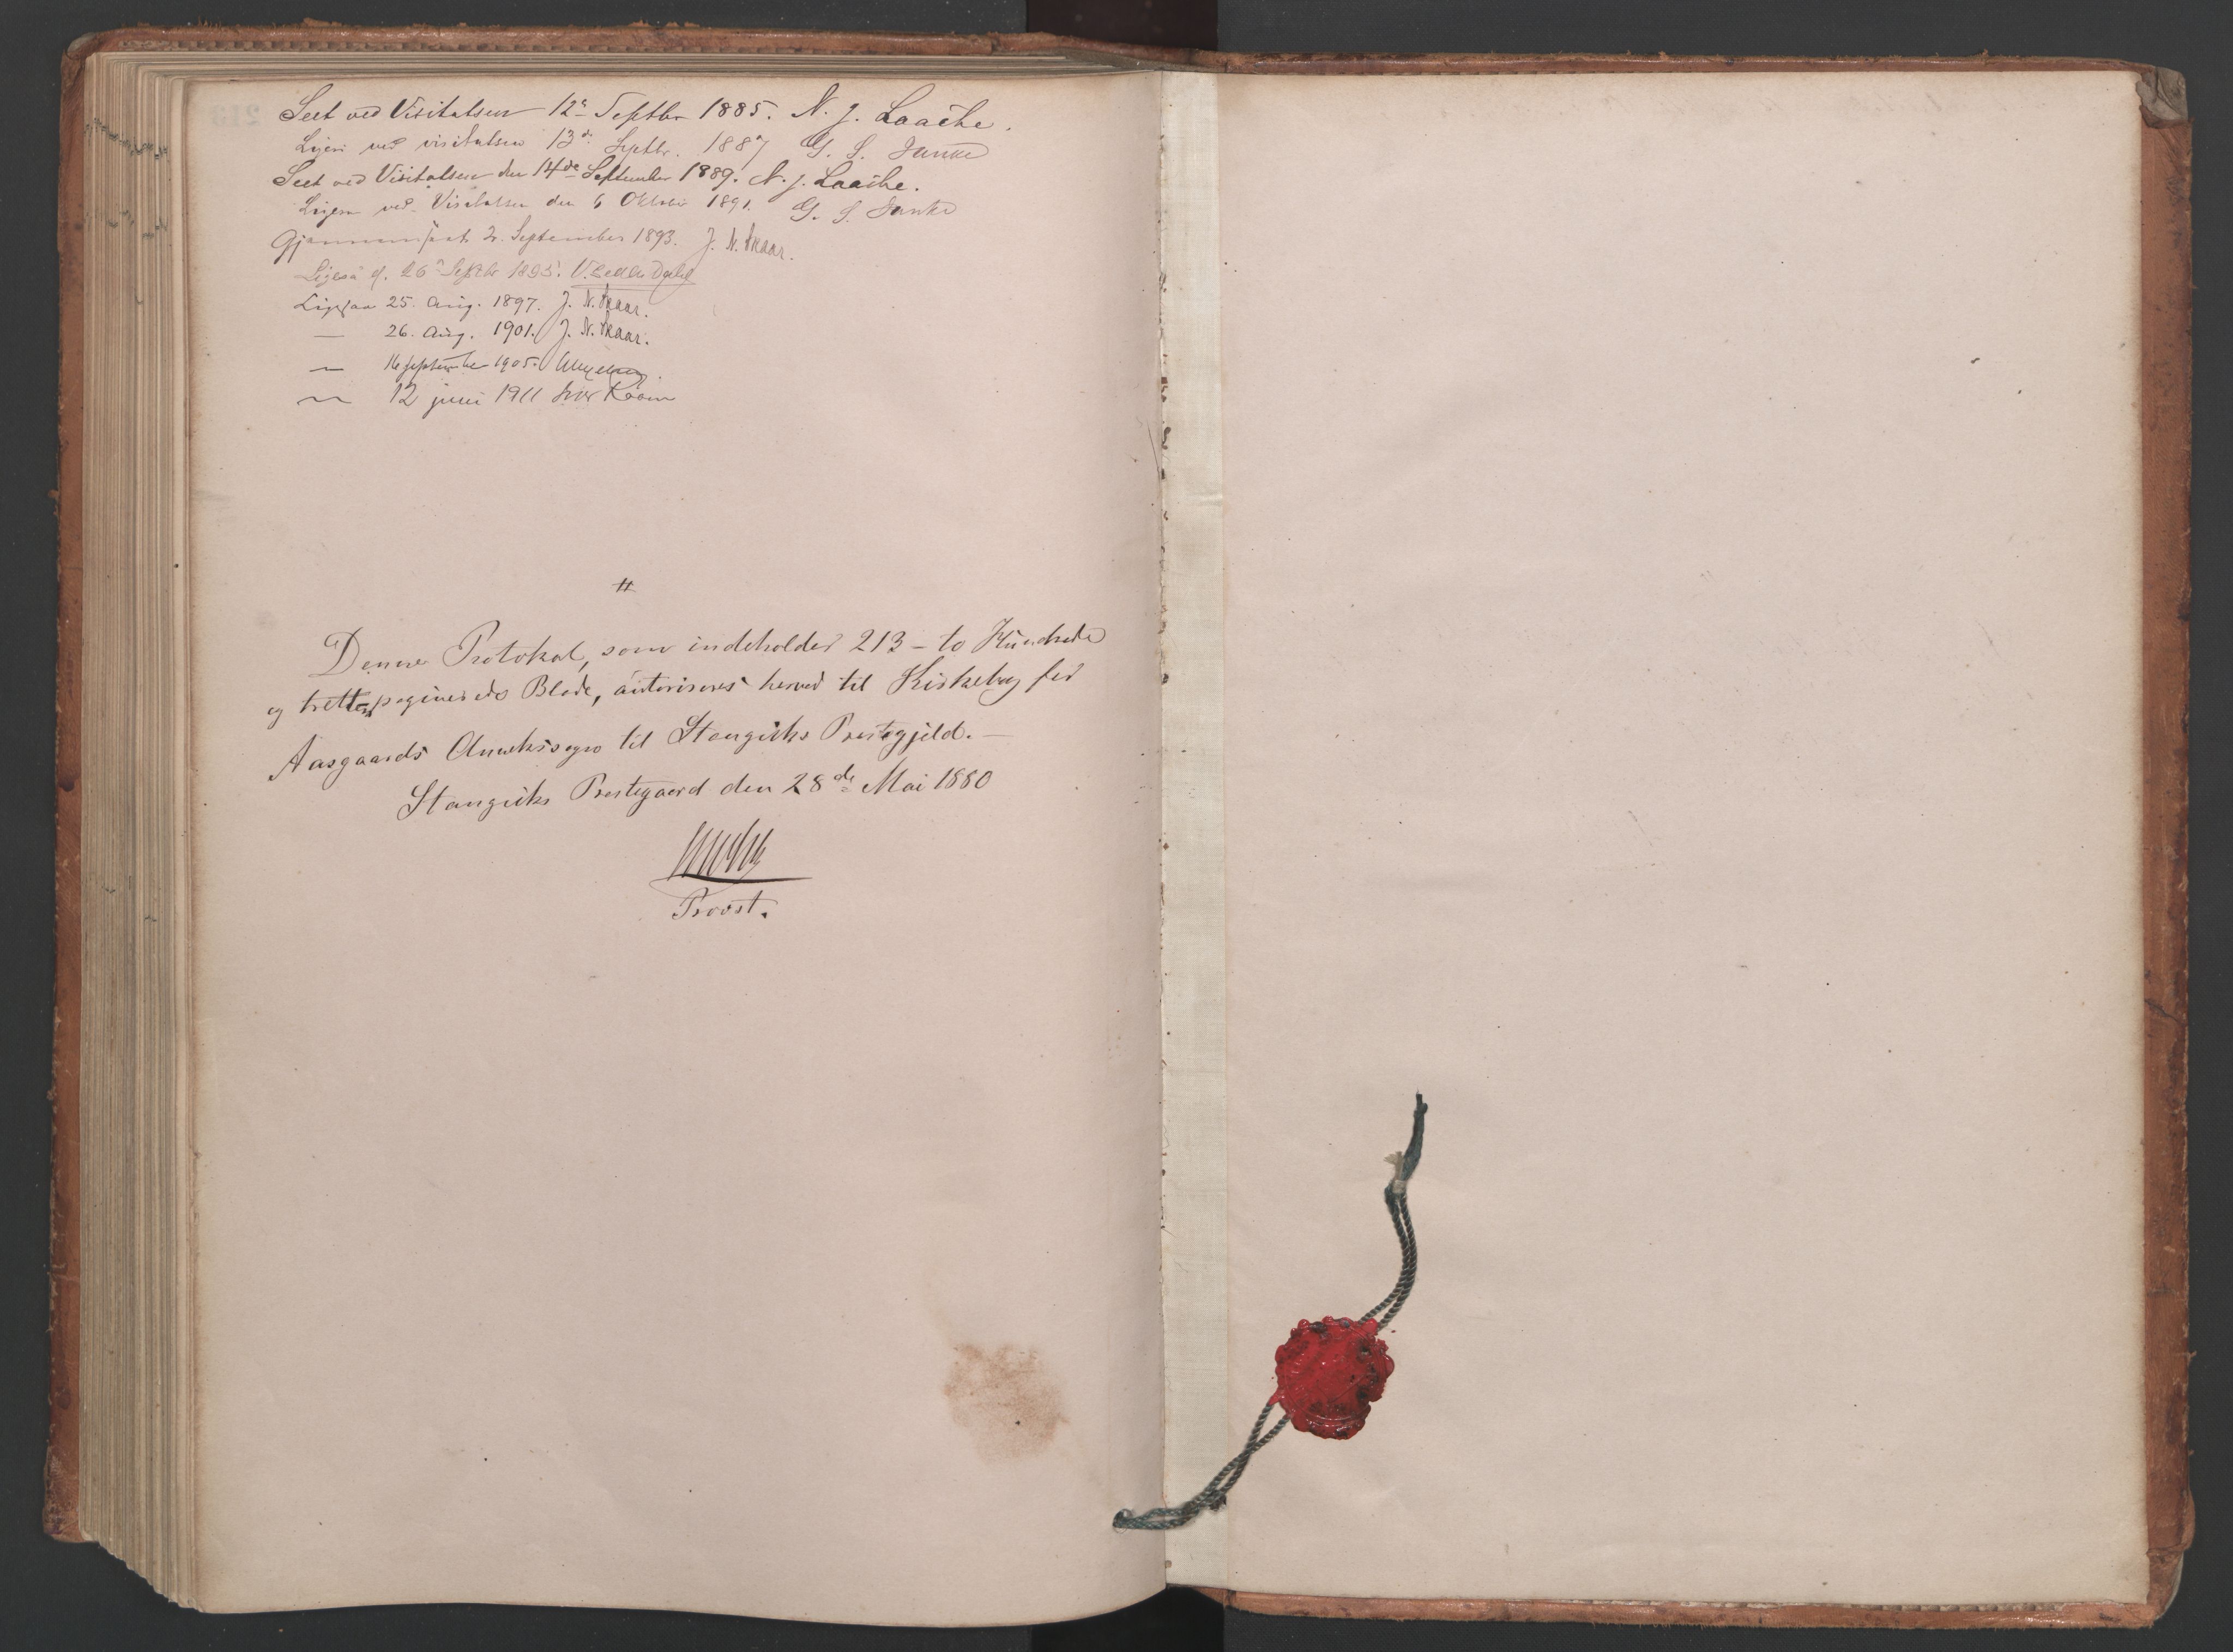 Seet ved Visitatsen 12te Septbr 1885. N. J. Laache.
Ligesaa ved visitatsen 13de Septbr. 1887 G. S.
Seet ved Visitatsen den 14de September 1889. N. J. Laache.
Ligesaa ved Visitatsen den 6 Oktober 1891. G. S.
Gjennemseet 2. September 1893. J. N. Skaar.
Ligesaa d. 26de Septbr 1895.
Ligesaa 25. Aug. 1897. J. N. Skaar.
— 26. Aug. 1901. J. N. Skaar.
— 16 september 1905.
— 12 juni 1911
#
Denne Protokol, som indeholder 213 – to Hundrede
og tretten paginerede Blade, autoriseres herved til Kirkebog for
Aasgaards Annekssogn til Stangviks Prestegjeld. —
Stangviks Prestegaard den 28de Mai 1880
Provst.